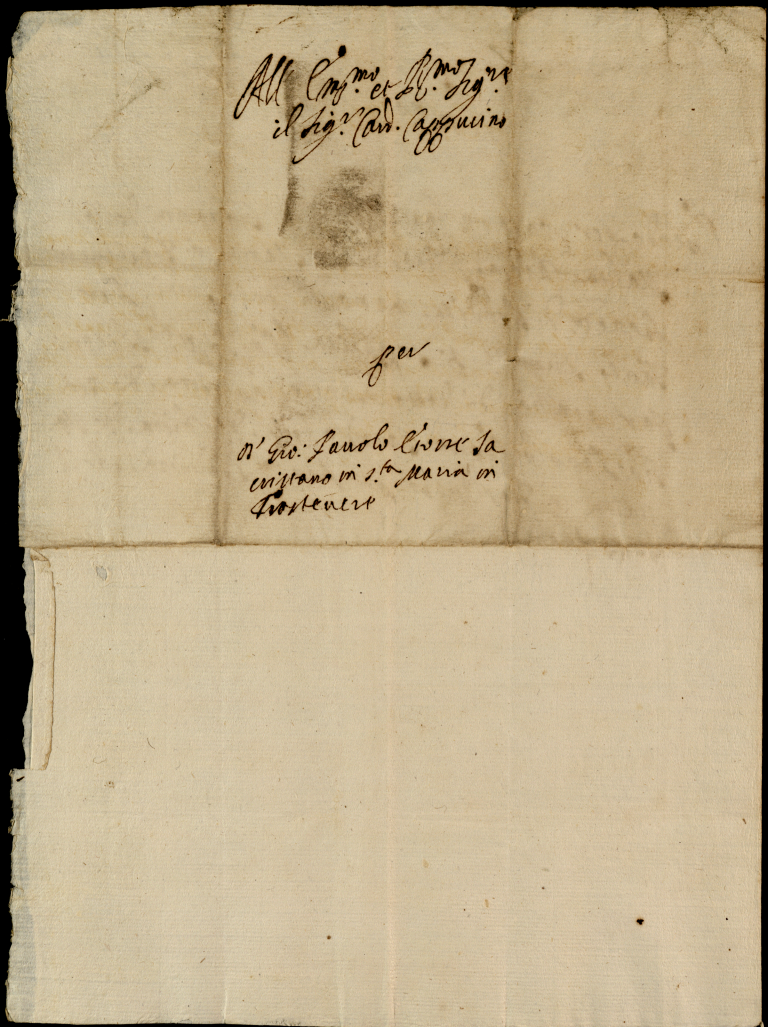 All' Em.mo et R.mo Sig.re
il Sig.r Card. Cappucino
per
D' Gio: Pauolo Leone Sa
cristano in s.ta Maria in
Trastevere